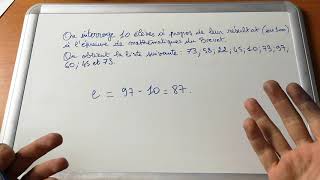 On interroge 10 élèves à propos de leur résultat (sur 100)
à l'épreuve de mathématiques du Brevet.
On obtient la liste suivante : 73; 58; 22; 45; 10; 73; 97;
60; 45 et 73.
e = 97 - 10 = 87.